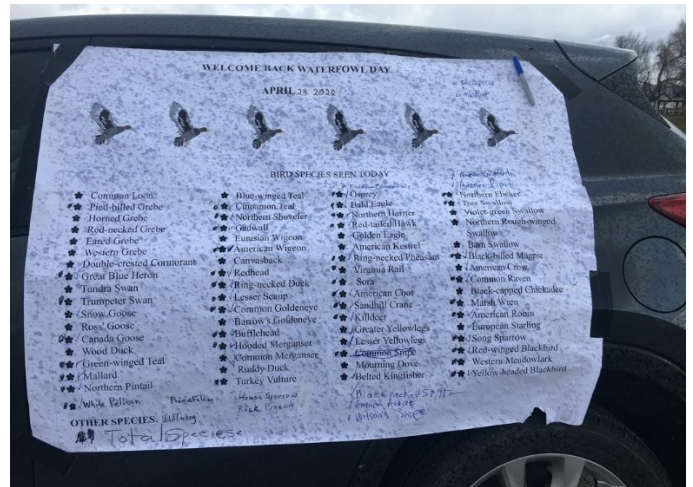 WELCOME BACK WATERFOWL DAY
APRIL 23 2022
BIRD SPECIES SEEN TODAY
Common Loon
Pied-billed Grebe
Horned Grebe
Red-necked Grebe
Eared Grebe
Western Grebe
Double-crested Cormorant
Great Blue Heron
Tundra Swan
Trumpeter Swan
Snow Goose
Ross' Goose
Canada Goose
Wood Duck
Green-winged Teal
Mallard
Northern Pintail
White Pelican
Blue-winged Teal
Cinnamon Teal
Northern Shoveler
Gadwall
Eurasian Wigeon
American Wigeon
Canvasback
Redhead
Ring-necked Duck
Lesser Scaup
Common Goldeneye
Barrow's Goldeneye
Bufflehead
Hooded Merganser
Common Merganser
Ruddy Duck
Turkey Vulture
Prairie Falcon
House Sparrow
Rock Pigeon
Osprey
Bald Eagle
Northern Harrier
Red-tailed Hawk
Golden Eagle
American Kestrel
Ring-necked Pheasant
Virginia Rail
Sora
American Coot
Sandhill Crane
Killdeer
Greater Yellowlegs
Lesser Yellowlegs
Common Snipe
Mourning Dove
Belted Kingfisher
Black necked Stilt
American Avocet
Wilson's Snipe
Northern Flicker
Tree Swallow
Violet-green Swallow
Northern Rough-winged
Swallow
Barn Swallow
Black-billed Magpie
American Crow
Common Raven
Black-capped Chickadee
Marsh Wren
American Robin
European Starling
Song Sparrow
Red-winged Blackbird
Western Meadowlark
Yellow-headed Blackbird
OTHER SPECIES: Wild Turkey
Total Species